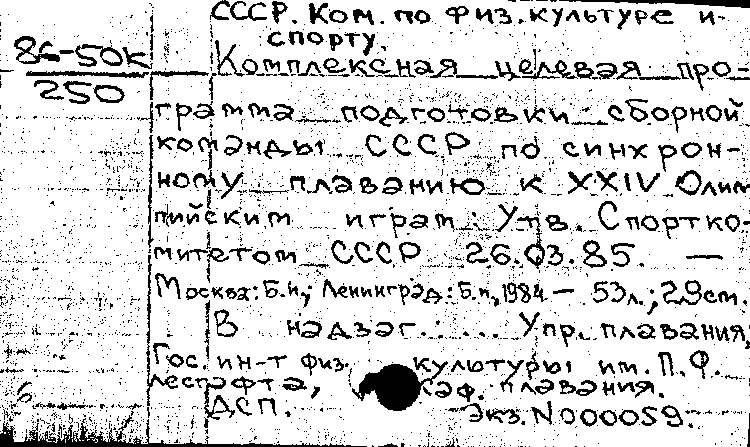 СССР. Ком. по физ. культуре и
спорту.
86-50к
250
Комплексная целевая про-
грамма подготовки сборной
команды СССР по синхрон-
ному плаванию к XXIV Олим
пийским играм. Утв. Спортко-
митетом СССР 26.03.85. —
Москва: Б.и.; Ленинград: Б.и., 1984 — 53л.; 29см.
В надзаг.: ... Упр. плавания,
Гос. ин-т физ. культуры им. П.Ф.
Лесгафта, Каф. плавания.
ДСП. Экз. N000059.
6